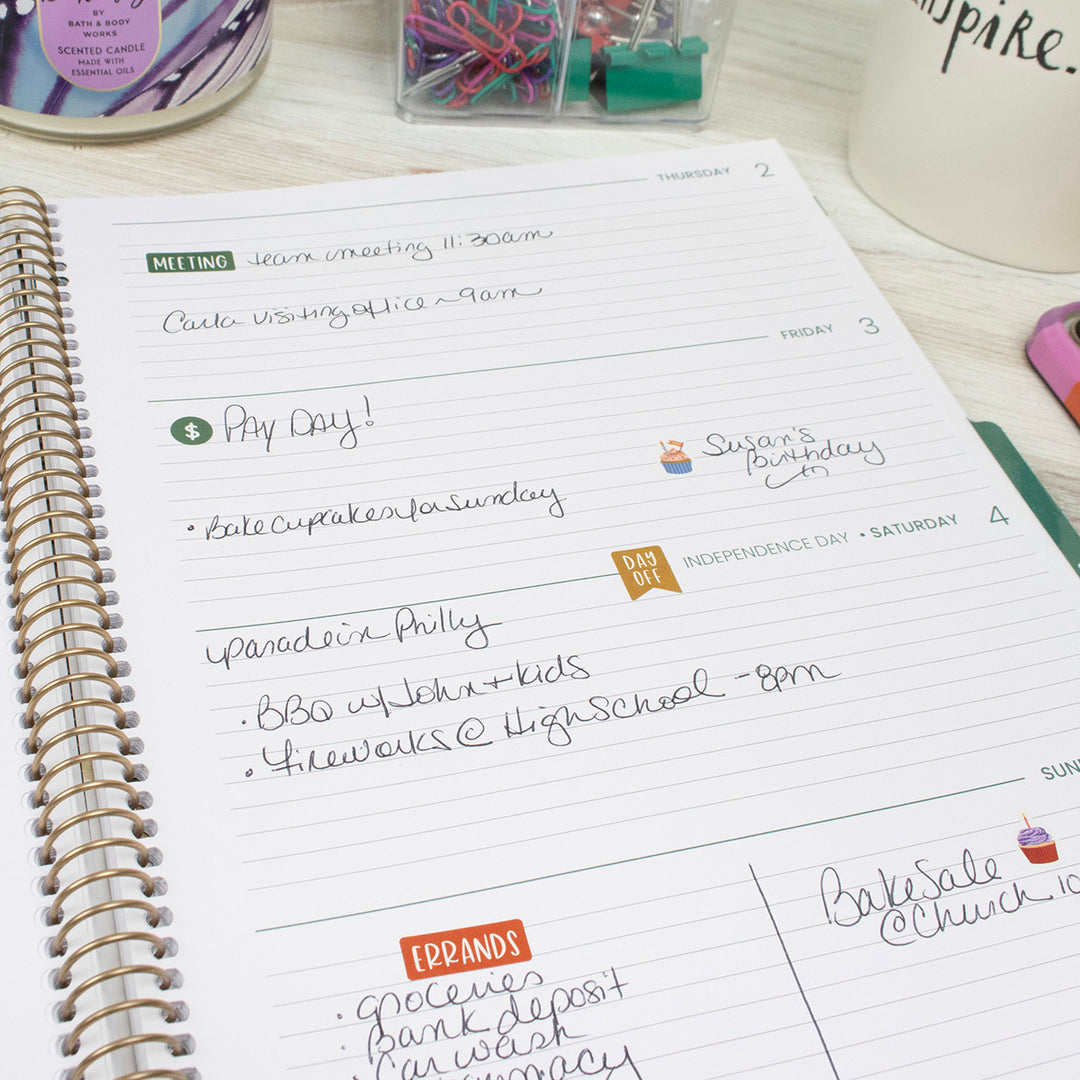 BY
BATH & BODY
WORKS
SCENTED CANDLE
MADE WITH
ESSENTIAL OILS
inspire.
THURSDAY 2
MEETING team meeting 11:30am
Carla visiting office ~ 9am
FRIDAY 3
$ PAY DAY!
Susan's
birthday
• Bake cupcakes for Sunday
DAY
OFF
INDEPENDENCE DAY • SATURDAY 4
parade in Philly
• BBQ w/ John + kids
• fireworks @ High School - 8pm
SUN
Bake Sale
@ Church 10
ERRANDS
• groceries
• bank deposit
• car wash